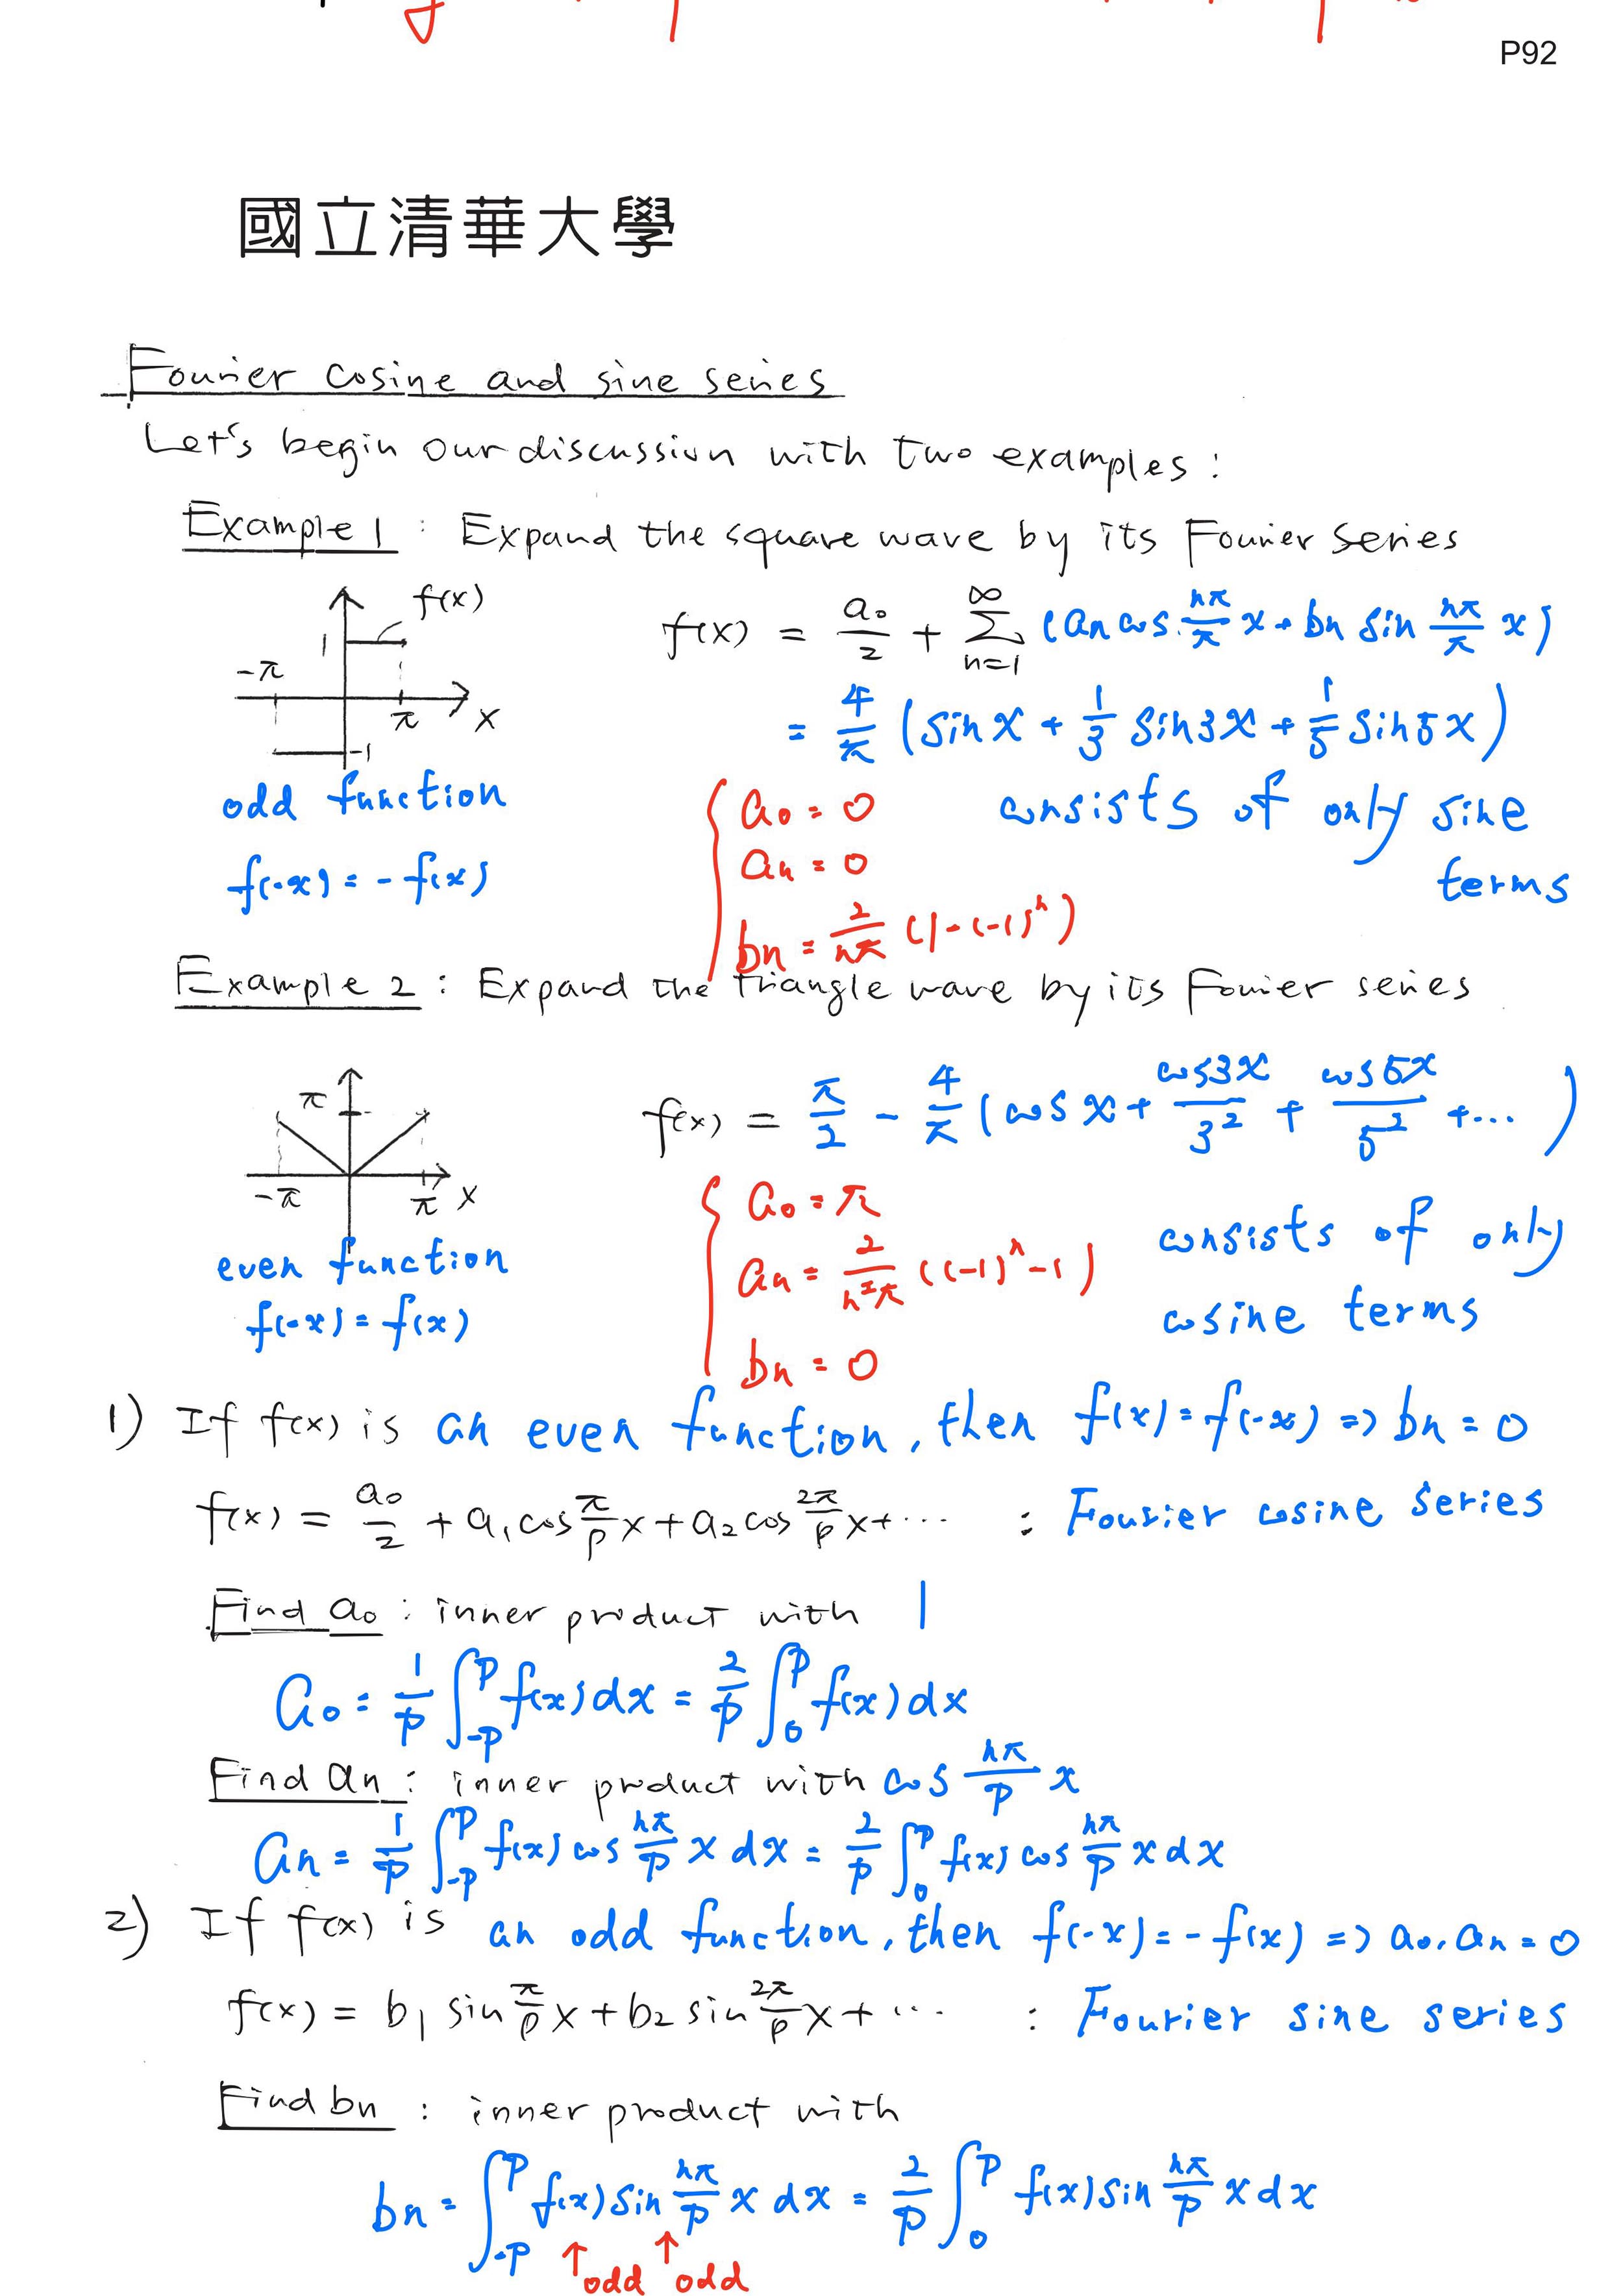 P92
國立清華大學
Fourier cosine and sine series
Let's begin our discussion with two examples:
Example 1 : Expand the square wave by its Fourier Series
f(x)
1
-π
π
x
-1
f(x) = a₀/2 + Σ_{n=1}^{∞} (an cos nπ/π x + bn sin nπ/π x)
= 4/π (sin x + 1/3 sin3x + 1/5 sin5x)
odd function
f(-x) = -f(x)
a₀ = 0
an = 0
bn = 2/nπ (1-(-1)ⁿ)
consists of only sine
terms
Example 2 : Expand the triangle wave by its Fourier series
π
-π
π
x
f(x) = π/2 - 4/π (cos x + cos3x/3² + cos5x/5² + ... )
even function
f(-x) = f(x)
a₀ = π
an = 2/n²π ((-1)ⁿ-1)
bn = 0
consists of only
cosine terms
1) If f(x) is an even function, then f(x) = f(-x) => bn = 0
f(x) = a₀/2 + a₁ cos π/p x + a₂ cos 2π/p x + ... : Fourier cosine series
Find a₀ : inner product with 1
a₀ = 1/p ∫_{-p}^{p} f(x) dx = 2/p ∫_{0}^{p} f(x) dx
Find an : inner product with cos nπ/p x
an = 1/p ∫_{-p}^{p} f(x) cos nπ/p x dx = 2/p ∫_{0}^{p} f(x) cos nπ/p x dx
2) If f(x) is an odd function, then f(-x) = -f(x) => a₀, an = 0
f(x) = b₁ sin π/p x + b₂ sin 2π/p x + ... : Fourier sine series
Find bn : inner product with
bn = ∫_{-p}^{p} f(x) sin nπ/p x dx = 2/p ∫_{0}^{p} f(x) sin nπ/p x dx
↑odd ↑odd